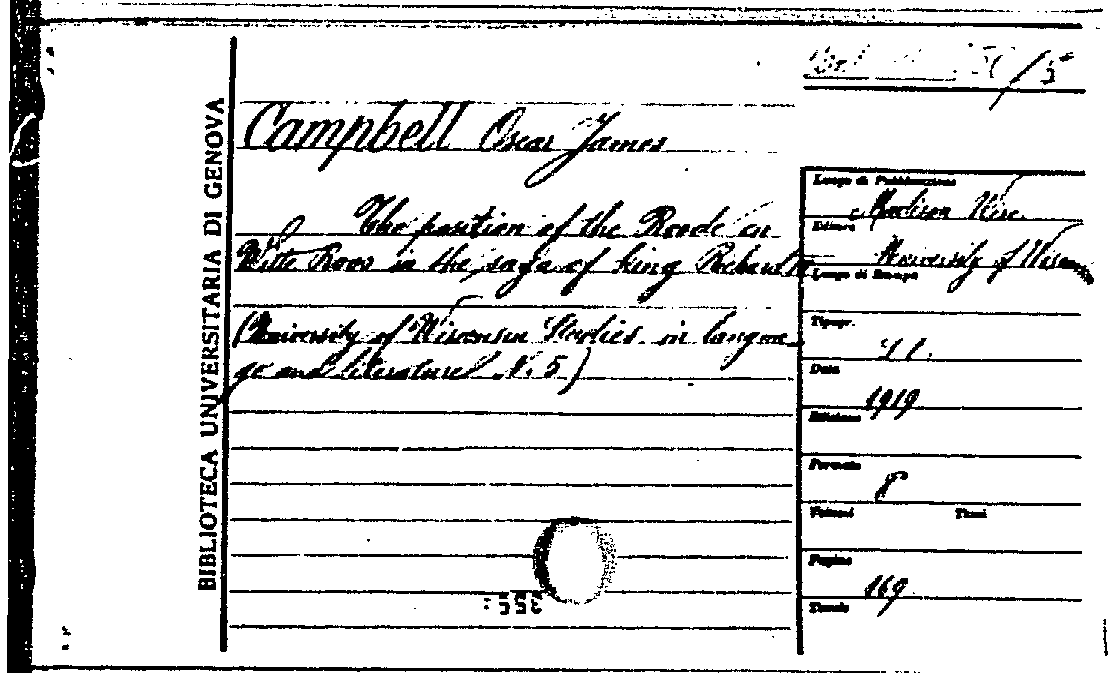 /5
BIBLIOTECA UNIVERSITARIA DI GENOVA
Campbell Oscar James
The position of the Roode en
Witte Roos in the saga of king Richard
(University of Wisconsin Studies in langua-
ge and literature N. 5)
Luogo di Pubblicazione
Madison Wisc.
Editore
University of Wiscon
Luogo di Stampa
Tipogr.
Data
1919
Edizione
Formato
8°
Volumi Tomi
Pagine
169
Tavole